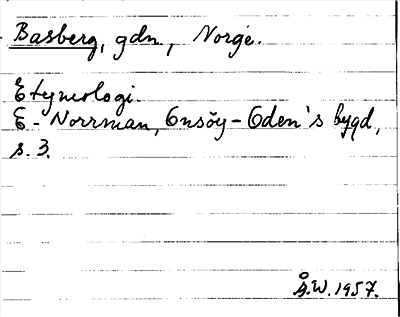 Basberg, gdn, Norge.
Etymologi.
E. Norrman, Onsöy - Oden's bygd,
s. 3.
Å.W. 1957.